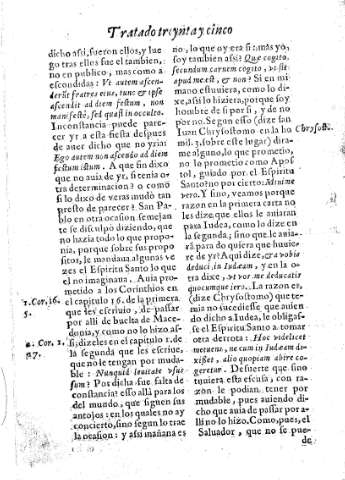 Tratado treynta y cinco
dicho assi, fueron ellos, y lue
go tras ellos fue el tambien,
no en publico, mas como a
escondidas: Vt autem ascen-
derūt fratres eius, tunc & ipse
ascendit ad diem festum, non
manifestè, sed quasi in occulto.
Inconstancia puede pare-
cer yr a esta fiesta despues
de auer dicho que no yria:
Ego autem non ascendo ad diem
festum istum. A que fin dixo
que no auia de yr, si tenia o
tra determinacion? o como
si lo dixo de veras mudò tan
presto de parecer? San Pa-
blo en otra ocasion semejan
te se disculpò diziendo, que
no hazia todo lo que propo-
nia, porque sobre sus propo
sitos, le mandaua algunas ve
zes el Espiritu Santo lo que
el no imaginaua. Auia pro-
metido a los Corinthios en
1. Cor. 16.
5.
el capitulo 16. de la primera
que les escriuio, de passar
por alli de buelta de Mace-
donia, y como no lo hizo as-
2. Cor. 1.
17.
si, dizeles en el capitulo 1. de
la segunda que les escriue,
que no le tengan por muda-
ble: Nunquid leuitate vsus
sum? Por dicha fue falta de
constancia? esso allà para los
del mundo, que siguen sus
antojos: en los quales no ay
concierto, sino segun lo trae
la ocasion: y assi mañana es
no, lo que oy era si: mas yo,
soy tambien assi? Quæ cogito,
secundum carnem cogito, vt sit
apud me est, & non? Si en mi
mano estuuiera, como lo di-
xe, assi lo hiziera, porque soy
hombre de si por si, y de no
por no. Segun esso (dize san
Iuan Chrysostomo en la ho
Chrysost.
mil. 3. sobre este lugar) dira-
me alguno, lo que prometio,
no lo prometio como Apos
tol, guiado por el Espiritu
Santo? no por cierto:
Y sino, veamos porque
razon en la primera carta no
les dize, que ellos le auiaran
para Iudea, como lo dize en
la segunda; sino que le auia-
rà para do quiera que huuie
re de yr? Aqui dize, & a vobis
deduci in Iudæam, y en la o
tra dixe, vt vos me deducatis
quocumque iero. La razon es,
(dize Chrysostomo) que te-
mio no sucediesse que auien
do dicho a Iudea, le obligas-
se el Espiritu Santo a tomar
otra derrota: Hoc videlicet
metuens, ne cum in Iudæam di-
xisset, alio quopiam abire co-
geretur. De suerte que sino
tuuiera esta escusa, con ra-
zon le podian tener por
mudable, pues auiendo di-
cho que auia de passar por a-
lli no lo hizo. Como, pues, el
Saluador, que no se pue-
de